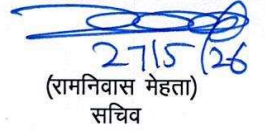 27/5/26
(रामनिवास मेहता)
सचिव